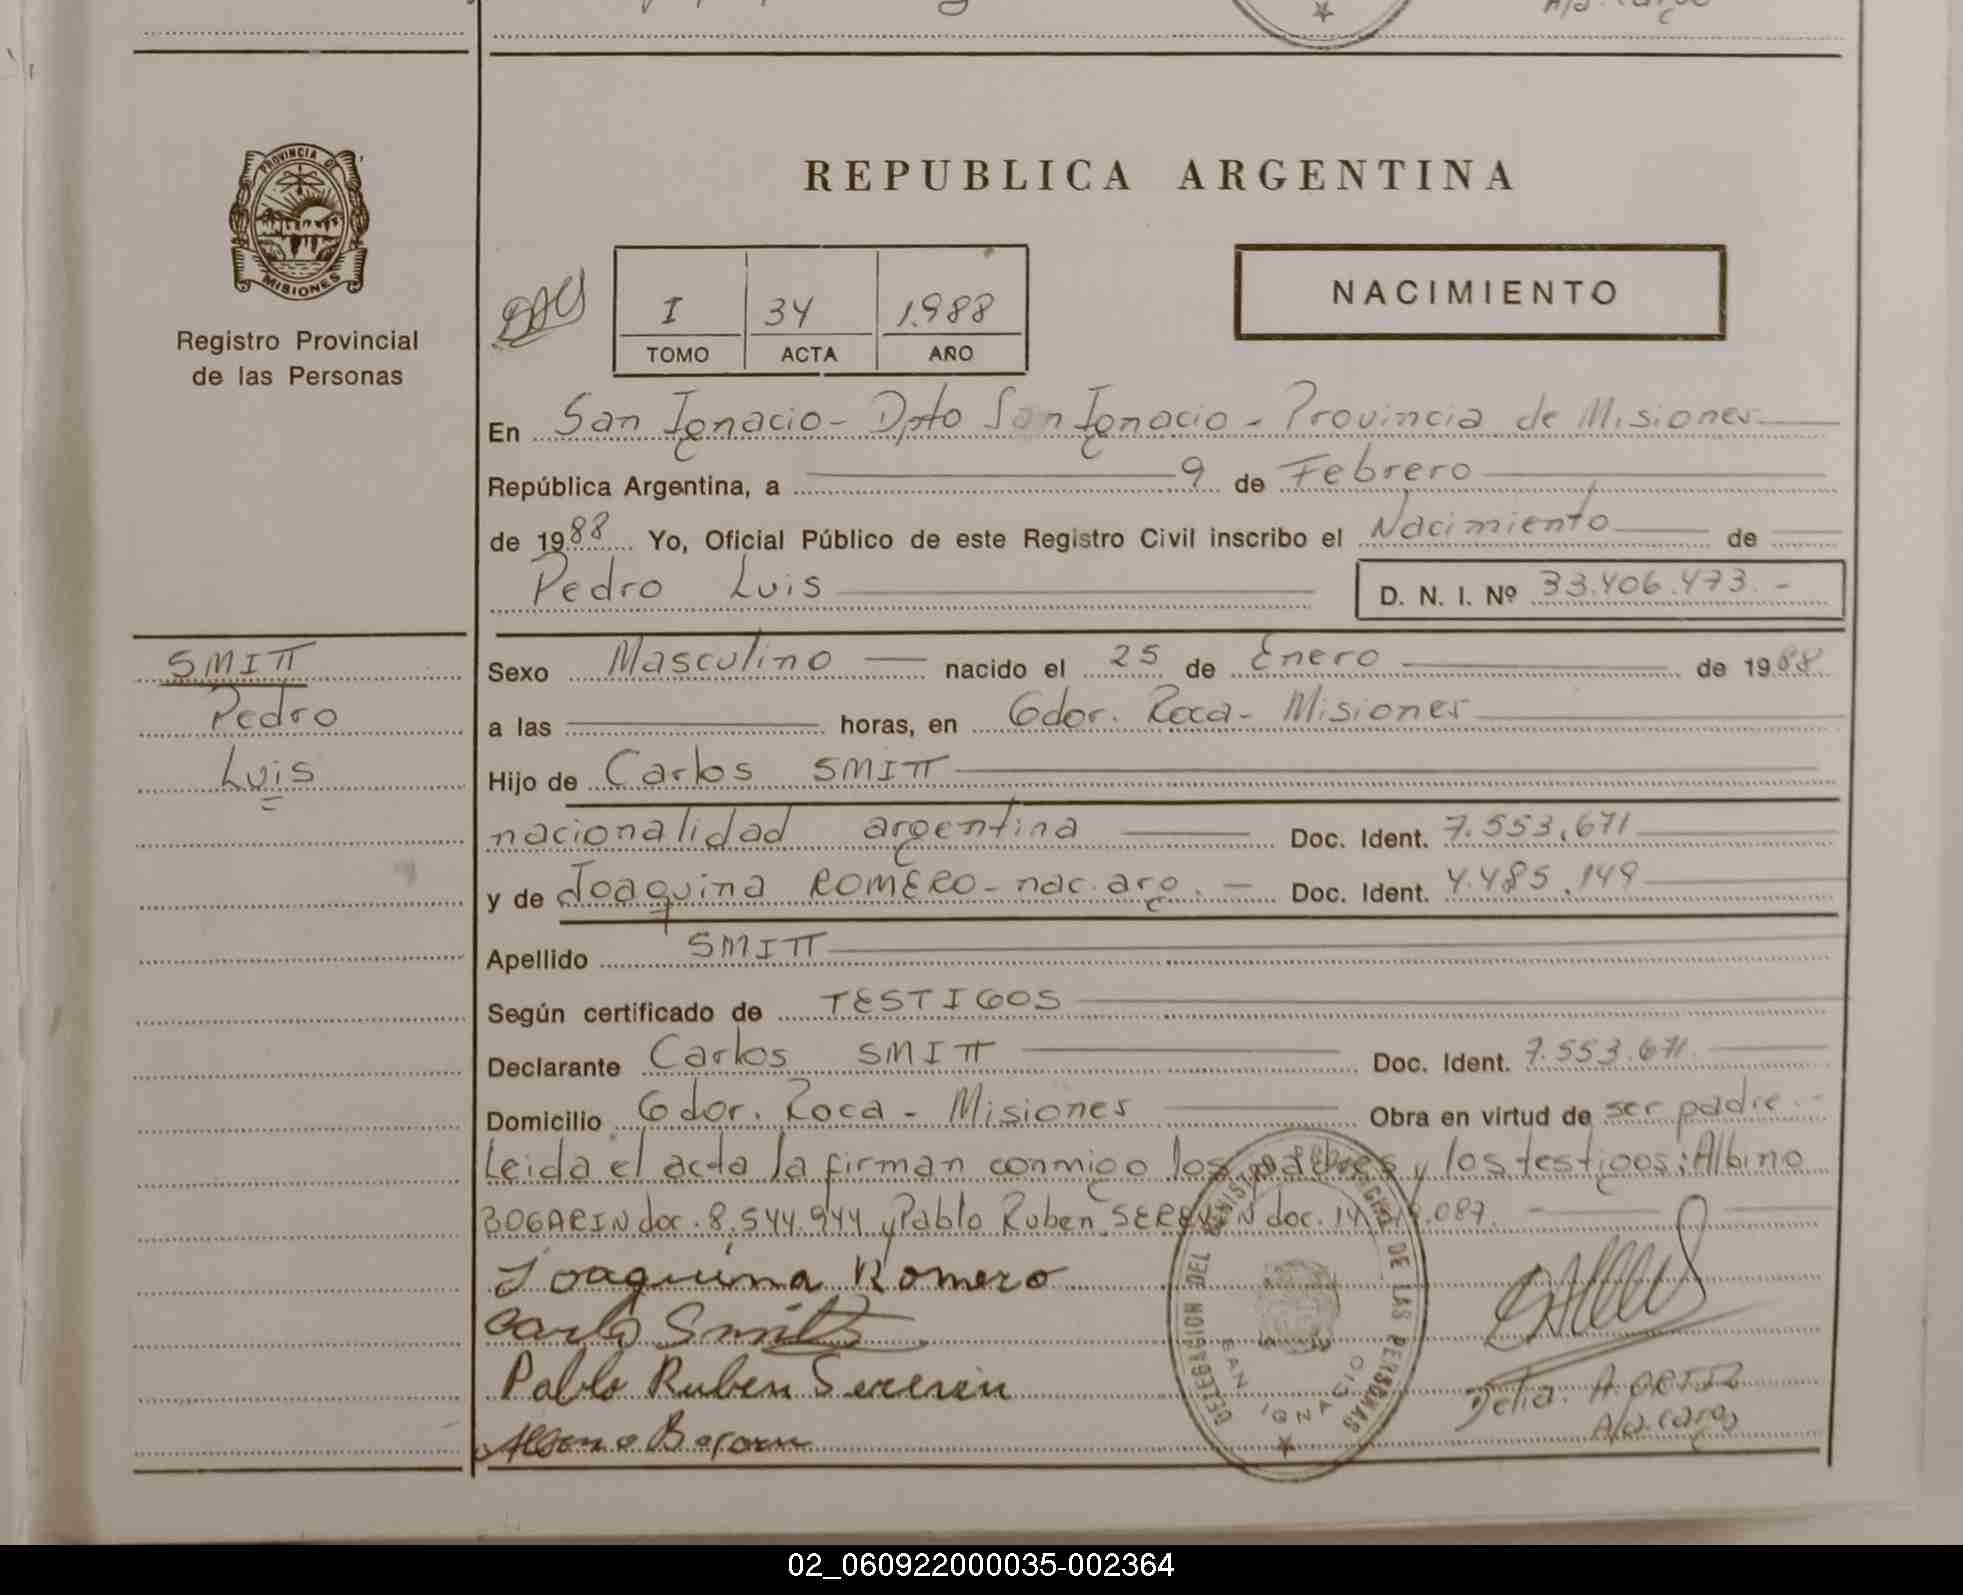 PROVINCIA DE
MISIONES
Registro Provincial
de las Personas
REPUBLICA ARGENTINA
I 34 1.988
TOMO ACTA AÑO
NACIMIENTO
En San Ignacio - Dpto San Ignacio - Provincia de Misiones
República Argentina, a 9 de Febrero
de 1988 Yo, Oficial Público de este Registro Civil inscribo el Nacimiento de
Pedro Luis D. N. I. Nº 33.406.473.-
SMITT
Pedro
Luis
Sexo Masculino nacido el 25 de Enero de 1988
a las horas, en Gdor. Roca - Misiones
Hijo de Carlos SMITT
nacionalidad argentina Doc. Ident. 7.553.671
y de Joaquina ROMERO - nac. arg. - Doc. Ident. 4.485.149
Apellido SMITT
Según certificado de TESTIGOS
Declarante Carlos SMITT Doc. Ident. 7.553.671.
Domicilio Gdor. Roca - Misiones Obra en virtud de ser padre.-
Leida el acta la firman conmigo los padres y los testigos: Albino
BOGARIN doc. 8.544.944 y Pablo Ruben SEREVIN doc. 087.
Joaquina Romero
Carlo Smitt
Pablo Ruben Severin
Bogarin
DELEGACION DEL REGISTRO PROVINCIAL DE LAS PERSONAS
SAN IGNACIO
Delia A. ORTIZ
A/a. Cargo
02_060922000035-002364